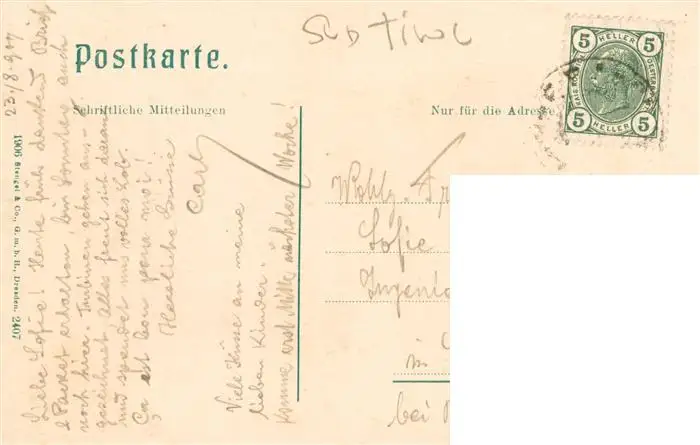 SÜDTIROL
Postkarte.
Schriftliche Mitteilungen
Nur für die Adresse
5 HELLER 5
5 HELLER 5
1906 Stengel & Co., G. m. b. H., Dresden. 2407
23/8.907
Liebe Sofie! Heute früh dankend Brief
& Packet erhalten, bin Sonntag auch
noch hier. Turbinen gehen aus-
gezeichnet, alles freut sich daran
und spendet uns volles Lob.
Ça est bon pour moi!
Herzliche Küsse
Carl
Viele Küsse an meine
lieben Kinder.
Komme erst Mitte nächster Woche!
Wohlg.
Sofie
Ingenie
in
bei